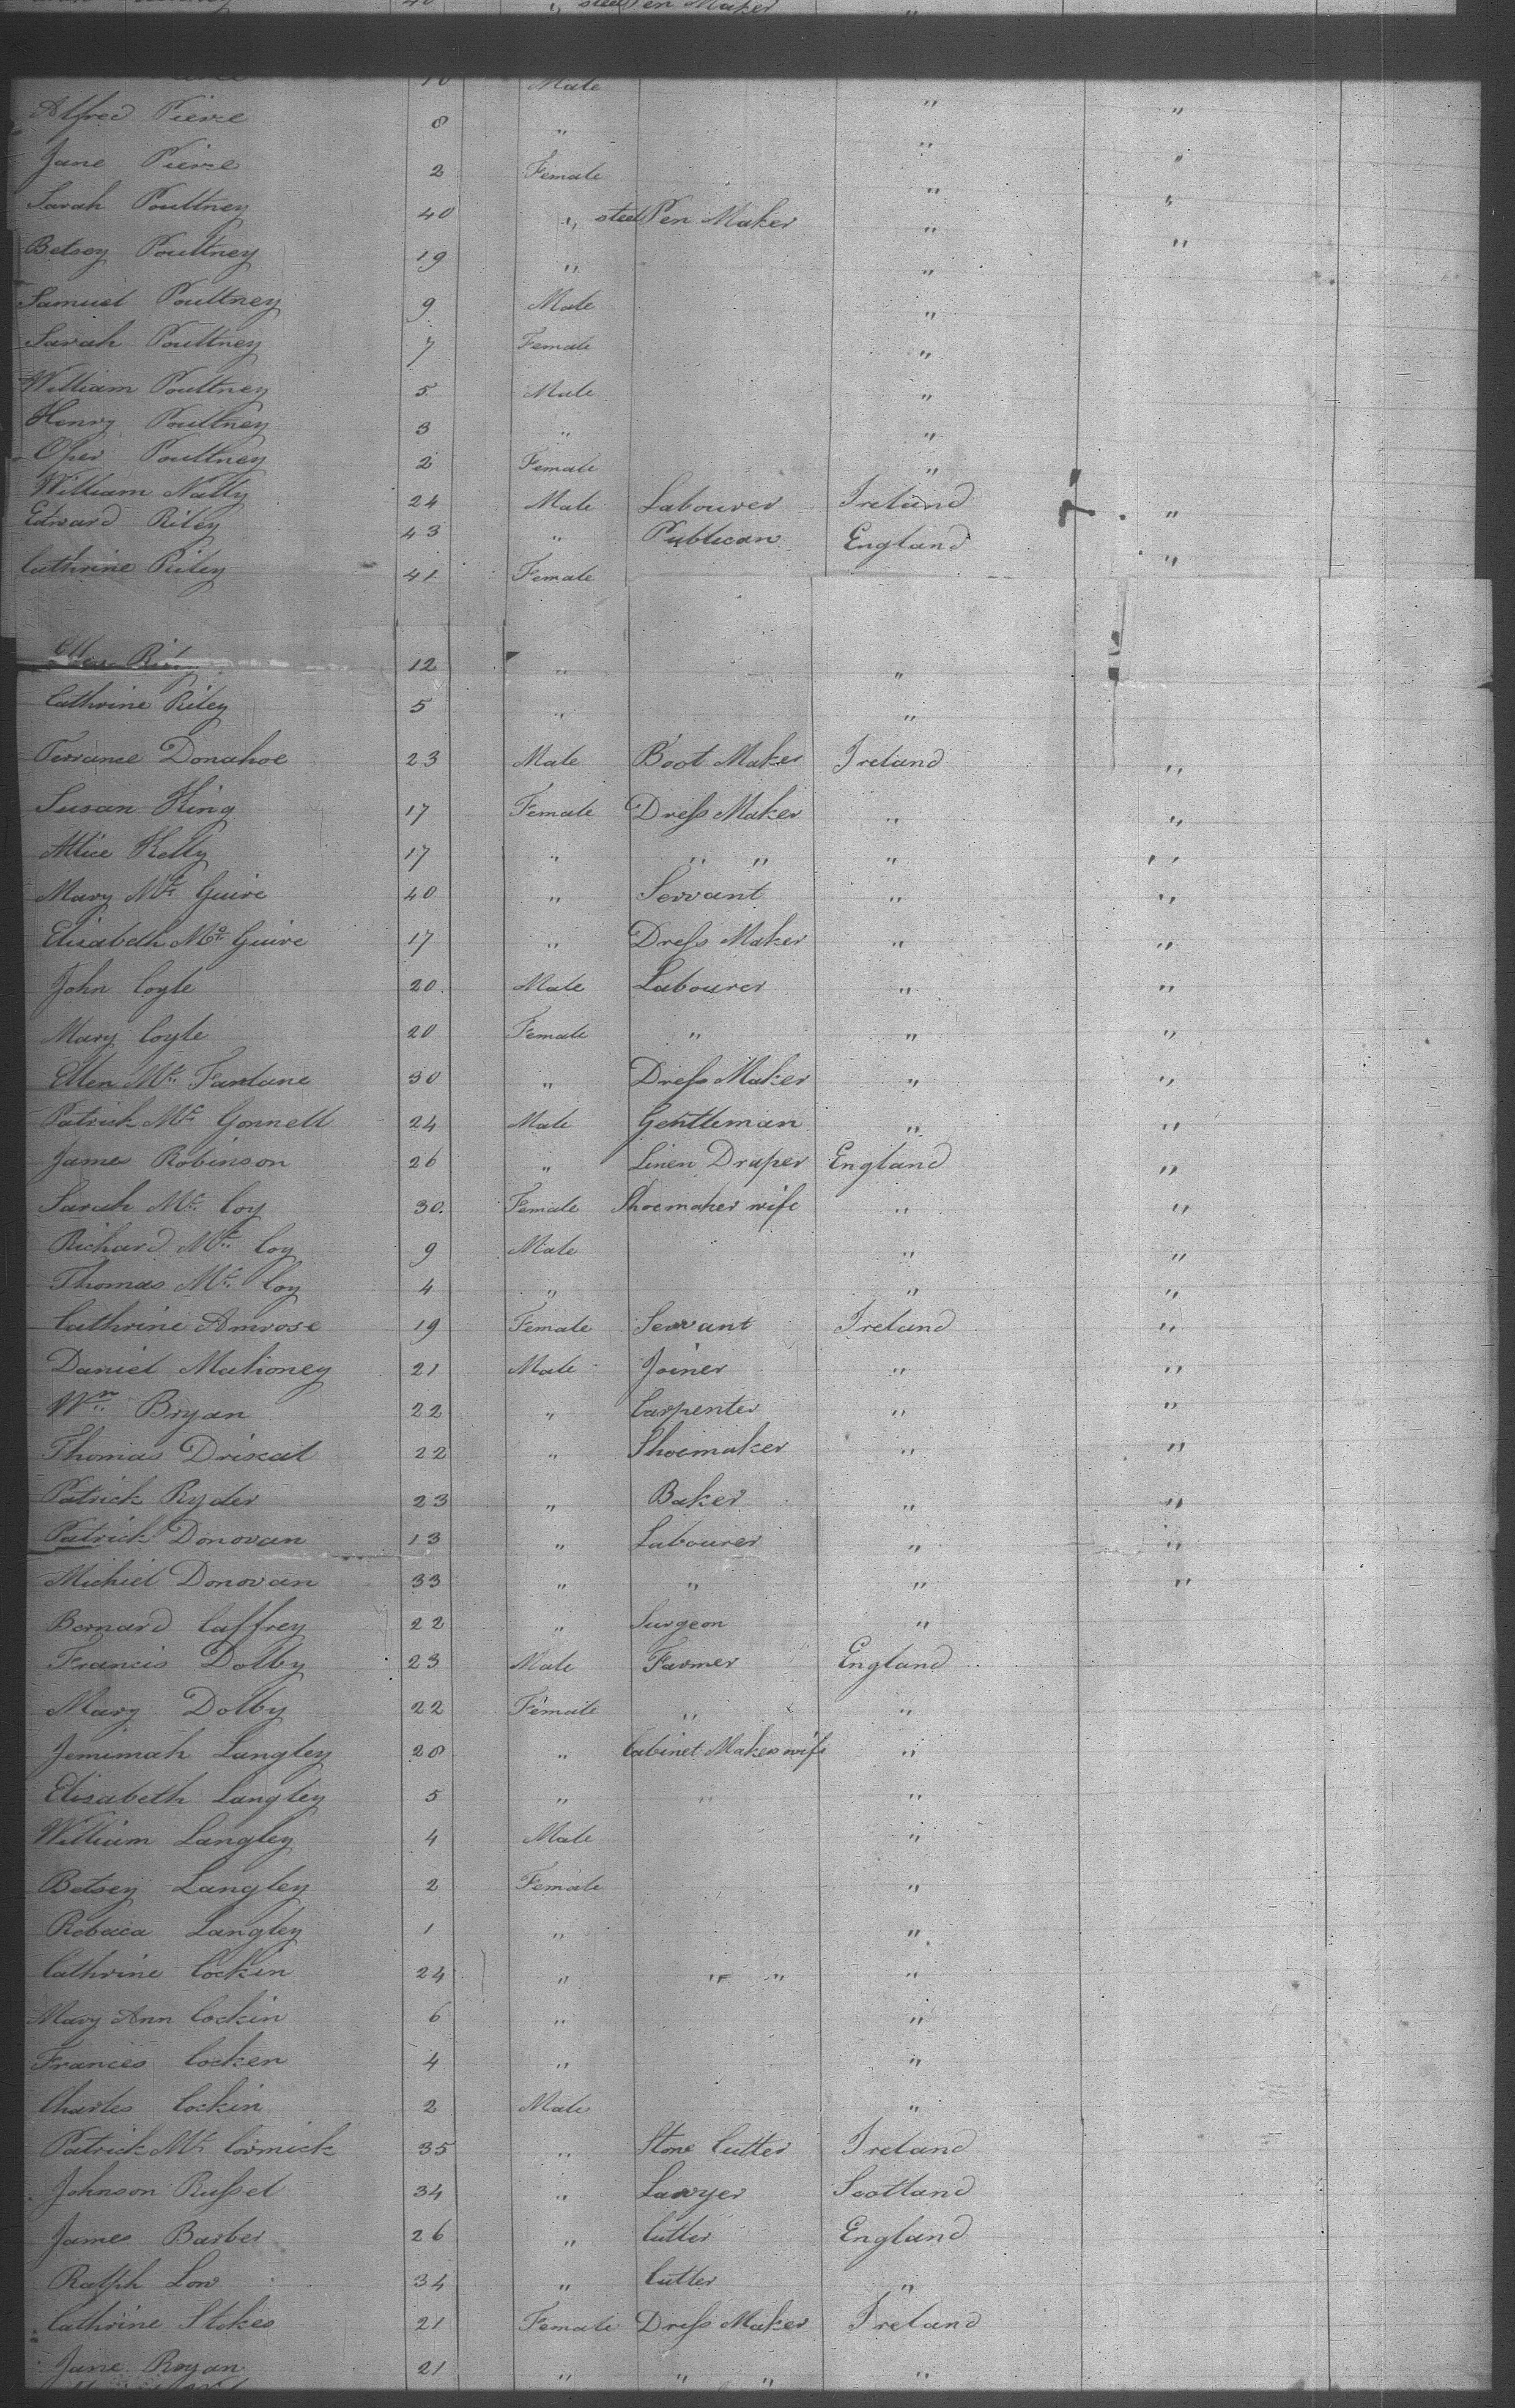 steel Pen Maker "
10 Male
Alfred Pierce 8 " " "
Jane Pierce 2 Female " "
Sarah Poultney 40 " steel Pen Maker " "
Betsey Poultney 19 " " "
Samuel Poultney 9 Male "
Sarah Poultney 7 Female "
William Poultney 5 Male "
Henry Poultney 3 " "
Poultney 2 Female "
William Nally 24 Male Labourer Ireland "
Edward Riley 43 " Publican England "
Cathrine Riley 41 Female
Ellen Riley 12 " "
Cathrine Riley 5 " "
Terrance Donahoe 23 Male Boot Maker Ireland "
Susan King 17 Female Dress Maker " "
Allice Kelly 17 " " " " "
Mary Mc Guire 40 " Servant " "
Elisabeth Mc Guire 17 " Dress Maker " "
John Coyle 20 Male Labourer " "
Mary Coyle 20 Female " " "
Ellen Mc Farlane 30 " Dress Maker " "
Patrick Mc Gonnell 24 Male Gentleman " "
James Robinson 26 " Linen Draper England "
Sarah Mc Coy 30 Female Shoemaker wife " "
Richard Mc Coy 9 Male " "
Thomas Mc Coy 4 " " "
Cathrine Amrose 19 Female Servant Ireland "
Daniel Mahoney 21 Male Joiner " "
Wm Bryan 22 " Carpenter " "
Thomas Driscal 22 " Shoemaker " "
Patrick Ryder 23 " Baker " "
Patrick Donovan 13 " Labourer " "
Michiel Donovan 33 " " " "
Bernard Caffrey 22 " Surgeon "
Francis Dolby 23 Male Farmer England
Mary Dolby 22 Female " "
Jemimah Langley 28 " Cabinet Makers wife "
Elisabeth Langley 5 " " "
William Langley 4 Male "
Betsey Langley 2 Female "
Robaca Langley 1 " "
Cathrine Cockin 24 " " " "
Mary Ann Cockin 6 " "
Frances Cocken 4 " "
Charles Cockin 2 Male "
Patrick Mc Cormick 35 " Stone Cutter Ireland
Johnson Russel 34 " Lawyer Scotland
James Barber 26 " Cutler England
Ralph Low 34 " Cutler "
Cathrine Stokes 21 Female Dress Maker Ireland
Jane Royan 21 " " " "